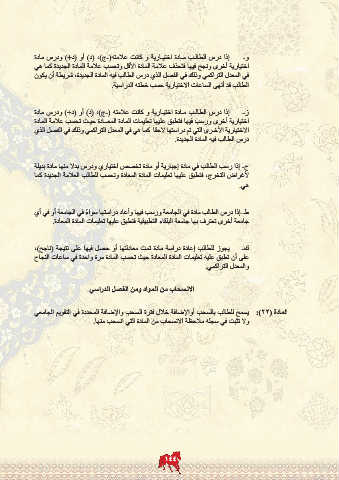 و- إذا درس الطالب مادة اختيارية و كانت علامته(-ج)، (د) أو (د+) ودرس مادة
اختيارية أخرى ونجح فيها فتحذف علامة المادة الأقل وتحسب علامة المادة الجديدة كما هي
في المعدل التراكمي وذلك في الفصل الذي درس الطالب فيه المادة الجديدة، شريطة أن يكون
الطالب قد أنهى الساعات الاختيارية حسب خطته الدراسية.
ز- إذا درس الطالب مادة اختيارية و كانت علامته (-ج)، (د) أو (د+) ودرس مادة
اختيارية أخرى ورسب فيها فتطبق عليها تعليمات المادة المعادة حيث تحسب علامة المادة
الاختيارية الأخرى التي تم دراستها لاحقا كما هي في المعدل التراكمي وذلك في الفصل الذي
درس الطالب فيه المادة الجديدة.
ح- إذا رسب الطالب في مادة إجبارية أو مادة تخصص اختياري ودرس بدلاً منها مادة بديلة
لأغراض التخرج، فتطبق عليها تعليمات المادة المعادة وتحسب للطالب العلامة الجديدة كما
هي.
ط- إذا درس الطالب مادة في الجامعة ورسب فيها وأعاد دراستها سواءً في الجامعة أو في أي
جامعة أخرى تعترف بها جامعة البلقاء التطبيقية فتطبق عليها تعليمات المادة المعادة.
ك- يجوز للطالب إعادة دراسة مادة تمت معادلتها أو حصل فيها على نتيجة (ناجح)،
على أن تطبق عليه تعليمات المادة المعادة حيث تحسب المادة مرة واحدة في ساعات النجاح
والمعدل التراكمي.
الانسحاب من المواد ومن الفصل الدراسي
المادة (٢٢): يسمح للطالب بالسحب أوالإضافة خلال فترة السحب والإضافة المحددة في التقويم الجامعي
ولا تثبت في سجله ملاحظة الانسحاب من المادة التي انسحب منها.
١٤٤